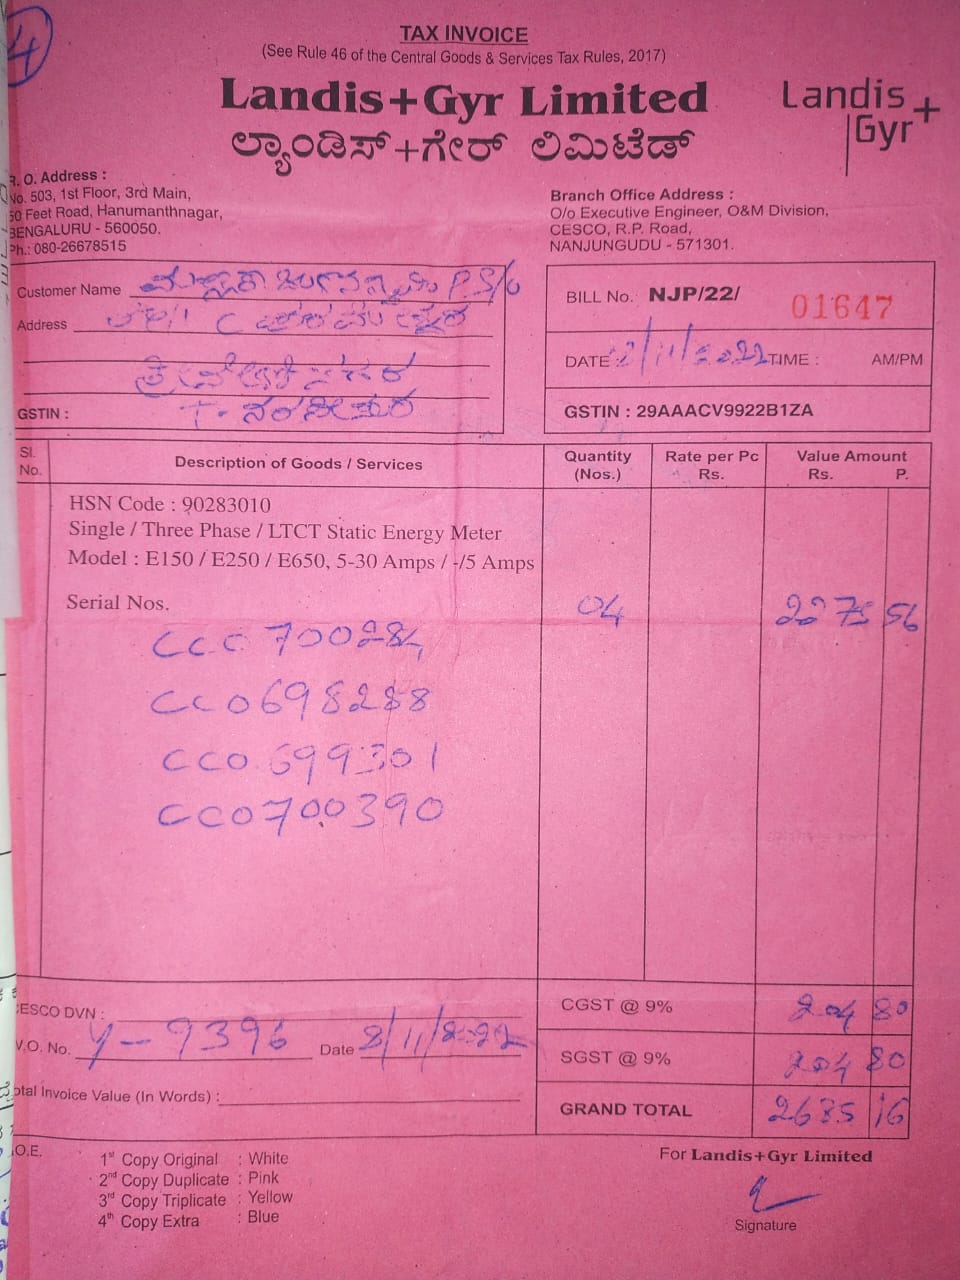 4
TAX INVOICE
(See Rule 46 of the Central Goods & Services Tax Rules, 2017)
Landis+Gyr Limited
ಲ್ಯಾಂಡಿಸ್+ಗೇರ್ ಲಿಮಿಟೆಡ್
Landis+
Gyr
R. O. Address :
No. 503, 1st Floor, 3rd Main,
50 Feet Road, Hanumanthnagar,
BENGALURU - 560050.
Ph.: 080-26678515
Branch Office Address :
O/o Executive Engineer, O&M Division,
CESCO, R.P. Road,
NANJUNGUDU - 571301.
Customer Name
Address
GSTIN : T. ನರಸೀಪುರ
BILL No. NJP/22/ 01647
DATE : /11/2022 TIME : AM/PM
GSTIN : 29AAACV9922B1ZA
Sl. No. Description of Goods / Services Quantity (Nos.) Rate per Pc Rs. Value Amount Rs. P.
HSN Code : 90283010
Single / Three Phase / LTCT Static Energy Meter
Model : E150 / E250 / E650, 5-30 Amps / -/5 Amps
Serial Nos. 04 2275 56
CCC 700284
CC0698288
CC0699301
CC0700390
CESCO DVN :
W.O. No. Y-9396 Date 8/11/2022
Total Invoice Value (In Words) :
CGST @ 9% 204 80
SGST @ 9% 204 80
GRAND TOTAL 2685 16
.O.E.
1st Copy Original : White
2nd Copy Duplicate : Pink
3rd Copy Triplicate : Yellow
4th Copy Extra : Blue
For Landis+Gyr Limited
Signature